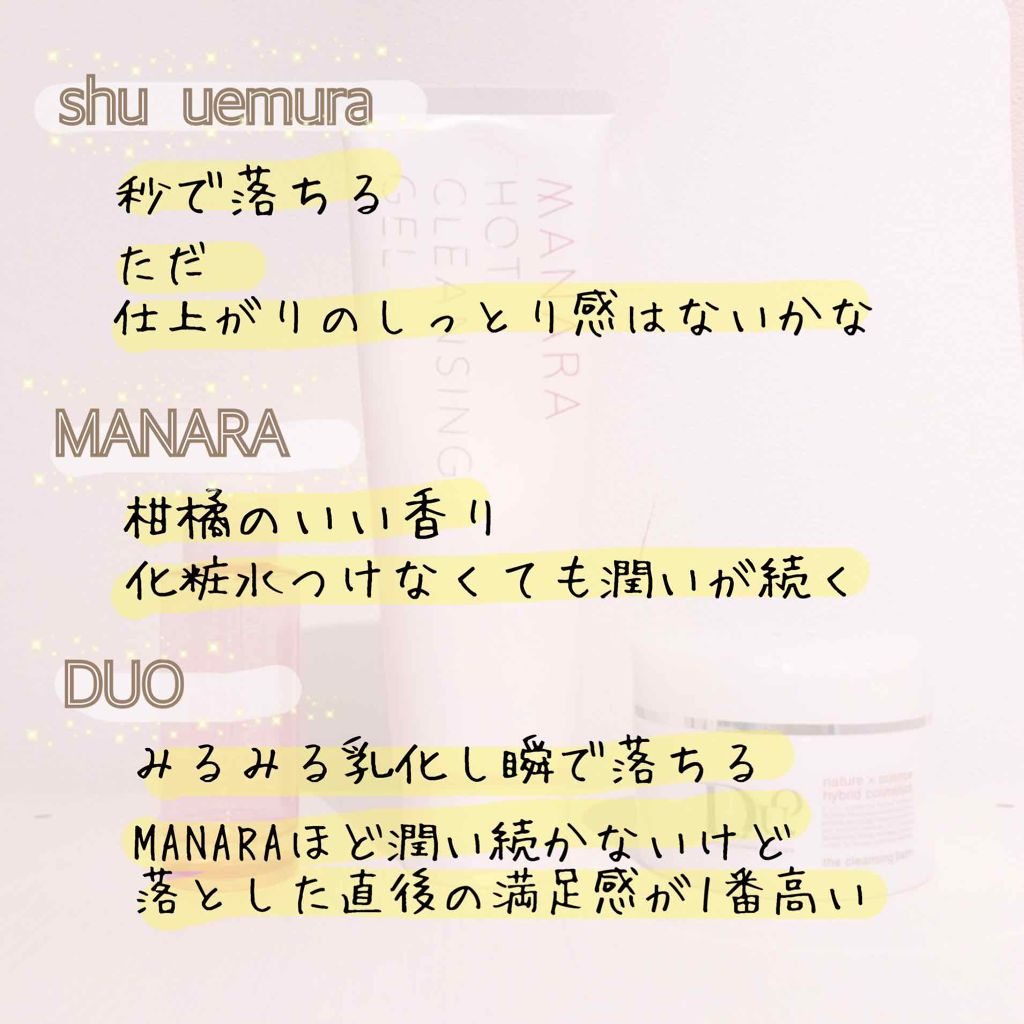 shu uemura
秒で落ちる
ただ
仕上がりのしっとり感はないかな
MANARA
柑橘のいい香り
化粧水つけなくても潤いが続く
DUO
みるみる乳化し瞬で落ちる
MANARAほど潤い続かないけど
落とした直後の満足感が1番高い
MANARA
HOT
CLEANSING
GEL
DUO
nature × science
hybrid cosmetics
the cleansing balm